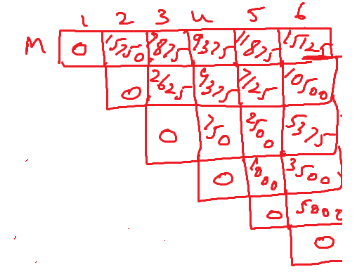 1 2 3 4 5 6
M 0 15750 7875 9375 11875 15125
0 2625 4375 7125 10500
0 750 2500 5375
0 1000 3500
0 5000
0